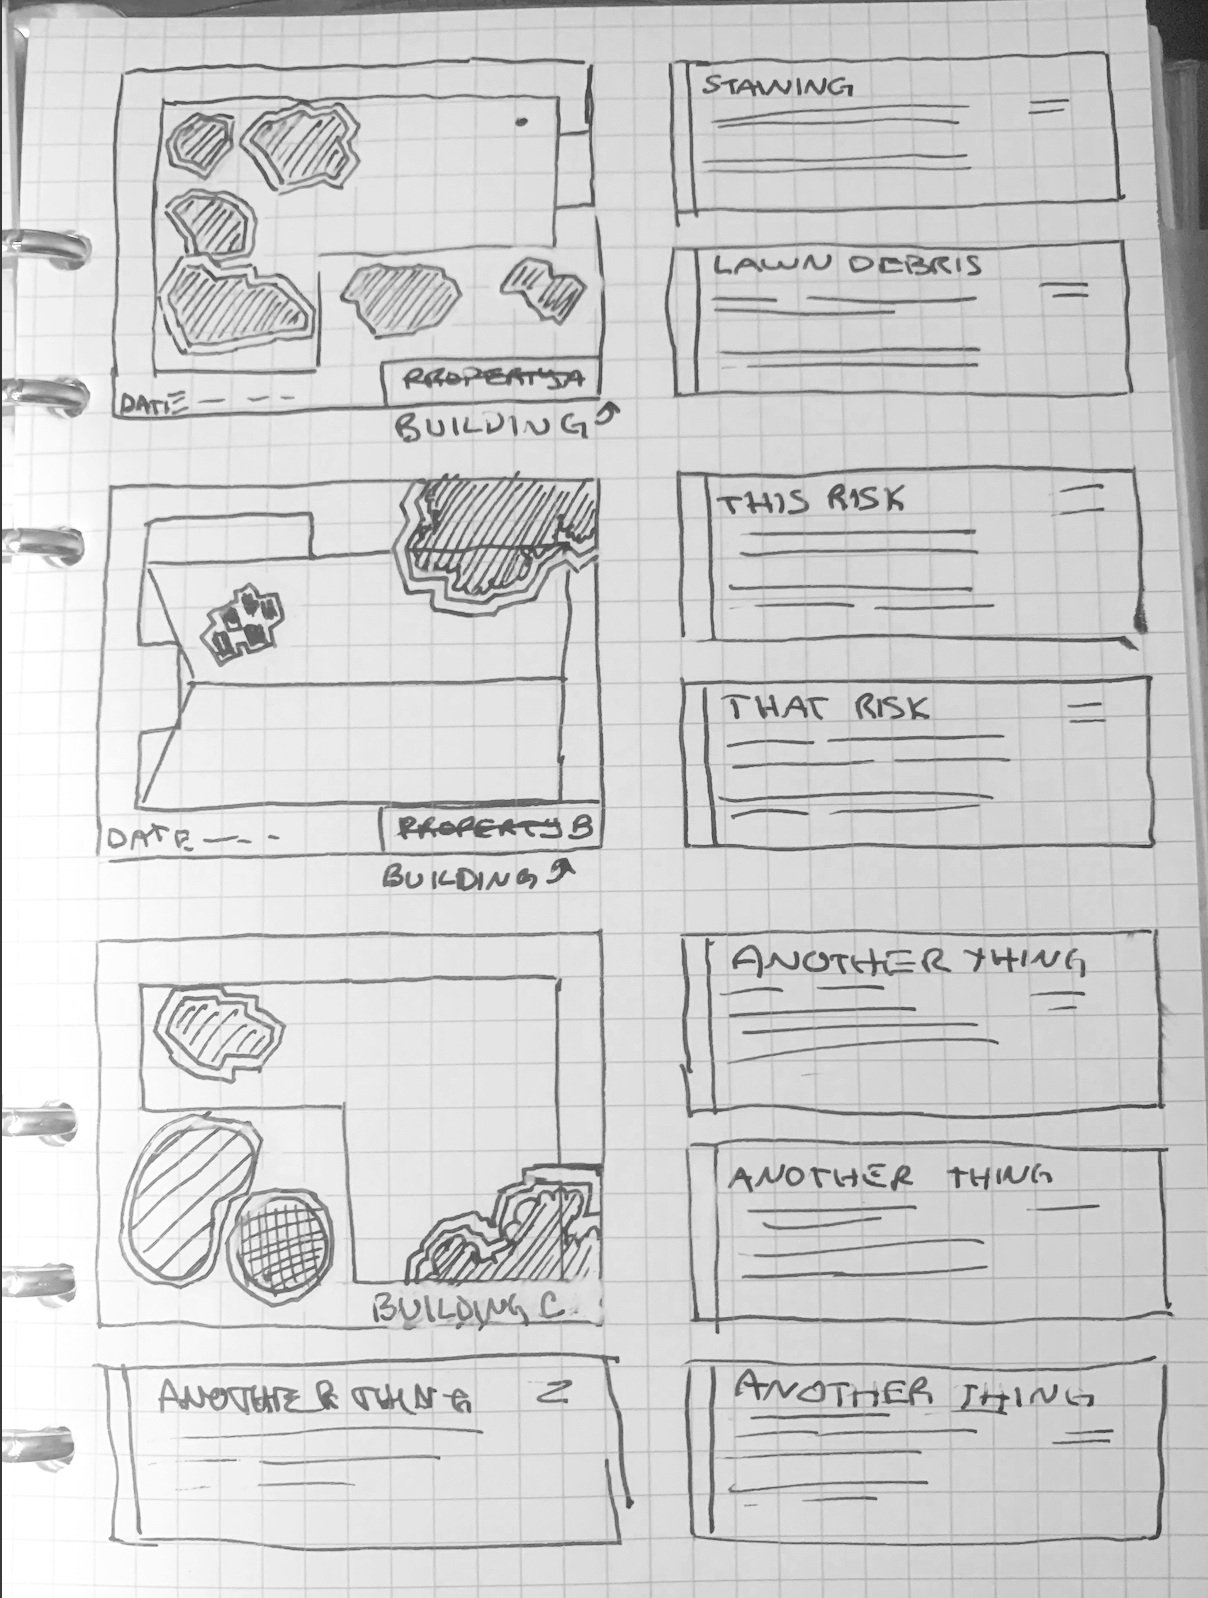 STAINING
LAWN DEBRIS
PROPERTY A
DATE
BUILDING
THIS RISK
THAT RISK
PROPERTY B
DATE
BUILDING
ANOTHER THING
ANOTHER THING
BUILDING C
ANOTHER THING
ANOTHER THING